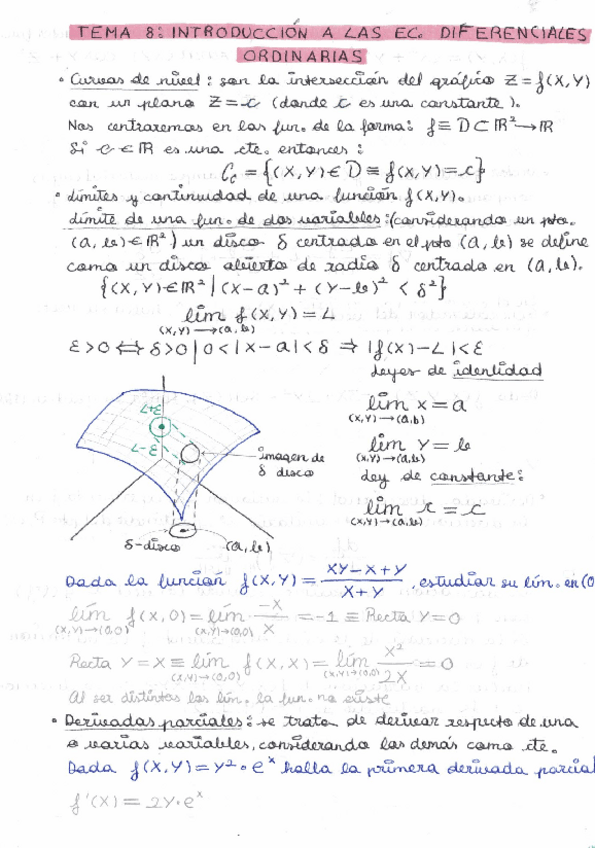 TEMA 8: INTRODUCCIÓN A LAS EC. DIFERENCIALES
ORDINARIAS
• Curvas de nivel: son la intersección del gráfico Z=f(X,Y)
con un plano Z=c (donde c es una constante).
Nos centraremos en las fun. de la forma: f≡D⊂ℝ²→ℝ
Si c∈ℝ es una cte. entonces:
C_c={(X,Y)∈D≡f(X,Y)=c}
• Límites y continuidad de una función f(X,Y).
Límite de una fun. de dos variables: (considerando un pto.
(a,b)∈ℝ²) un disco δ centrado en el pto (a,b) se define
como un disco abierto de radio δ centrado en (a,b).
{(X,Y)∈ℝ² | (X-a)²+(Y-b)²<δ²}
lím f(X,Y)=L
(X,Y)→(a,b)
ε>0⇔δ>0|0<|X-a|<δ⇒|f(X)-L|<ε
Leyes de identidad
lím X=a
(X,Y)→(a,b)
lím Y=b
(X,Y)→(a,b)
Ley de constante:
lím c=c
(X,Y)→(a,b)
L+ε
L-ε
imagen de
δ disco
δ-disco
(a,b)
Dada la función f(X,Y)=\frac{XY-X+Y}{X+Y}, estudiar su lím. en (0
lím f(X,0)=lím \frac{-X}{X}=-1≡Recta Y=0
(X,Y)→(0,0) (X,Y)→(0,0)
Recta Y=X≡lím f(X,X)=lím \frac{X²}{2X}=0
(X,Y)→(0,0) (X,Y)→(0,0)
Al ser distintos los lím. la fun. no existe
• Derivadas parciales: se trata de derivar respecto de una
o varias variables, considerando las demás como cte.
Dada f(X,Y)=Y²·eˣ halla la primera derivada parcial
f'(X)=2Y·eˣ